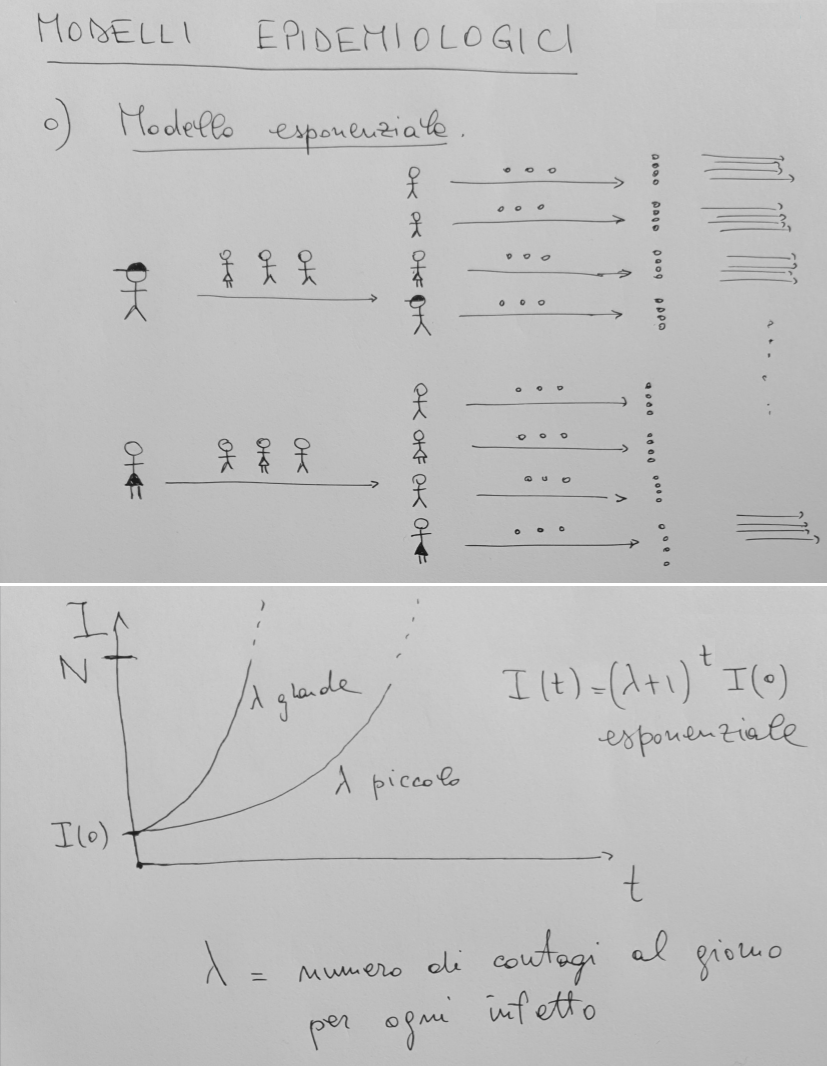 MODELLI EPIDEMIOLOGICI
0) Modello esponenziale.
I
N
λ grande
I(t)=(λ+1)^t I(0)
esponenziale
λ piccolo
I(0)
t
λ = numero di contagi al giorno
per ogni infetto